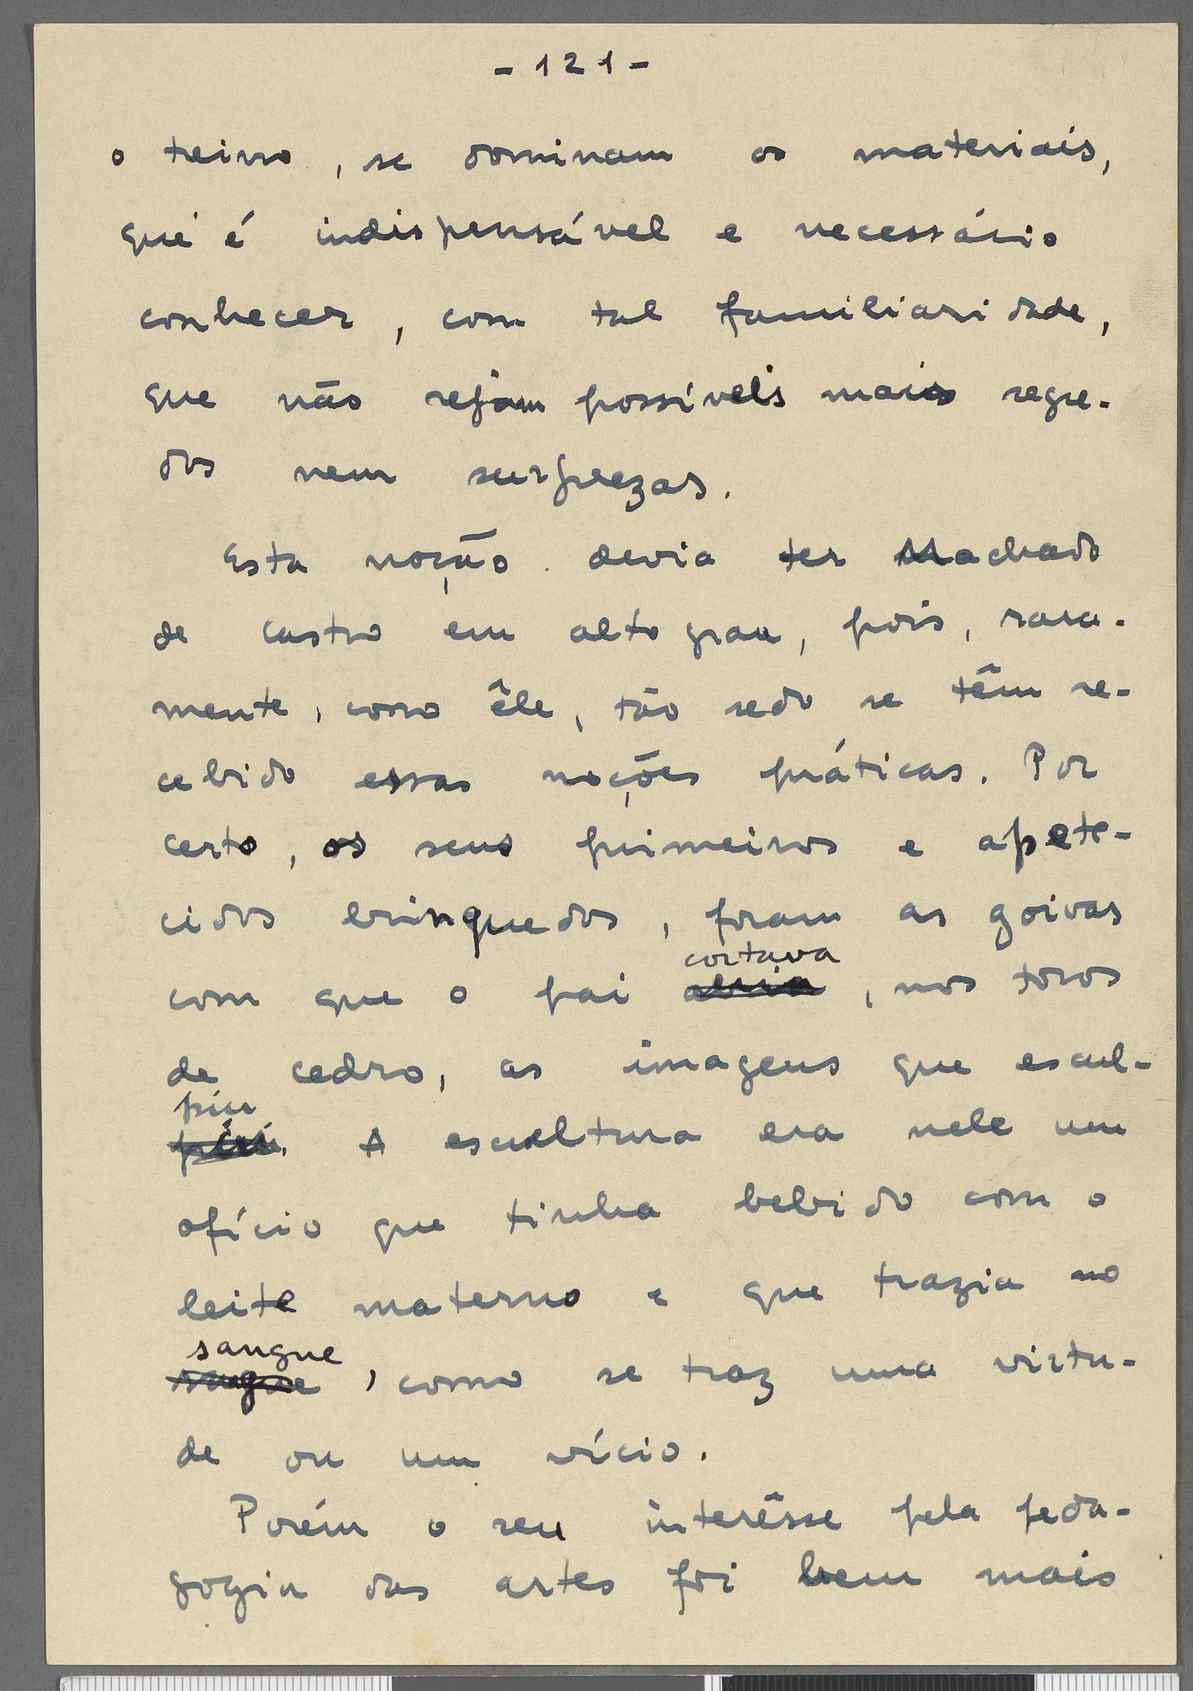 - 121 -
o treino, se dominam os materiais,
que é indispensável e necessário
conhecer, com tal familiaridade,
que não sejam possíveis mais segre-
dos nem surprezas.
Esta noção devia ter Machado
de Castro em alto grau, pois, rara-
mente, como êle, tão sedo se têm re-
cebido essas noções práticas. Por
certo, os seus primeiros e apete-
cidos brinquedos, foram as goivas
cortava
com que o pai abria, nos toros
de cedro, as imagens que escul-
piu
A escultura era nele um
ofício que tinha bebido com o
leite materno e que trazia no
sangue
sangue, como se traz uma virtu-
de ou um vício.
Porém o seu interêsse pela peda-
gogia das artes foi bem mais